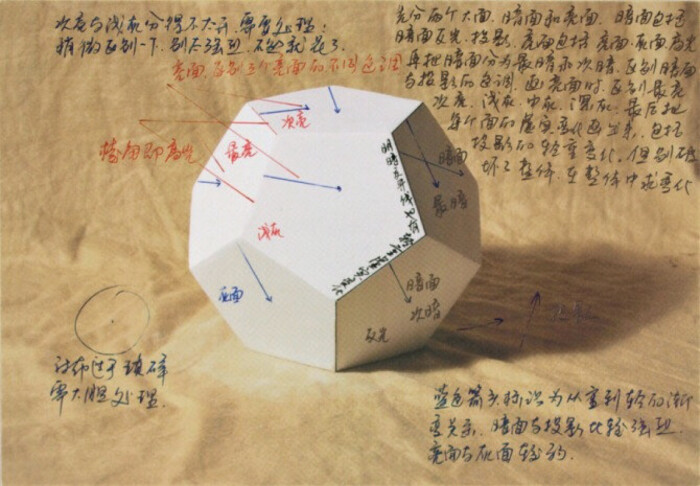 次亮与浅灰分得不太开，要有处理：
稍微区别一下，别太强烈，不然就花了。
亮面，区别三个亮面的不同色调
先分两个大面，暗面和亮面。暗面包括
暗面反光、投影，亮面包括亮面、灰面、高光
再把暗面分为最暗和次暗，区别暗面
与投影的色调，画亮面时，区别最亮
次亮，浅灰，中灰，深灰，最后把
每个面的虚实变化画出来，包括
投影的轻重变化。但别破
坏了整体，在整体中求变化
次亮
棱角即高光
最亮
浅灰
灰面
暗面
最暗
暗面
次暗
反光
衬布过于琐碎
要大胆处理。
蓝色箭头标识为从重到轻的渐
变关系，暗面与投影比较强烈，
亮面与灰面较弱。